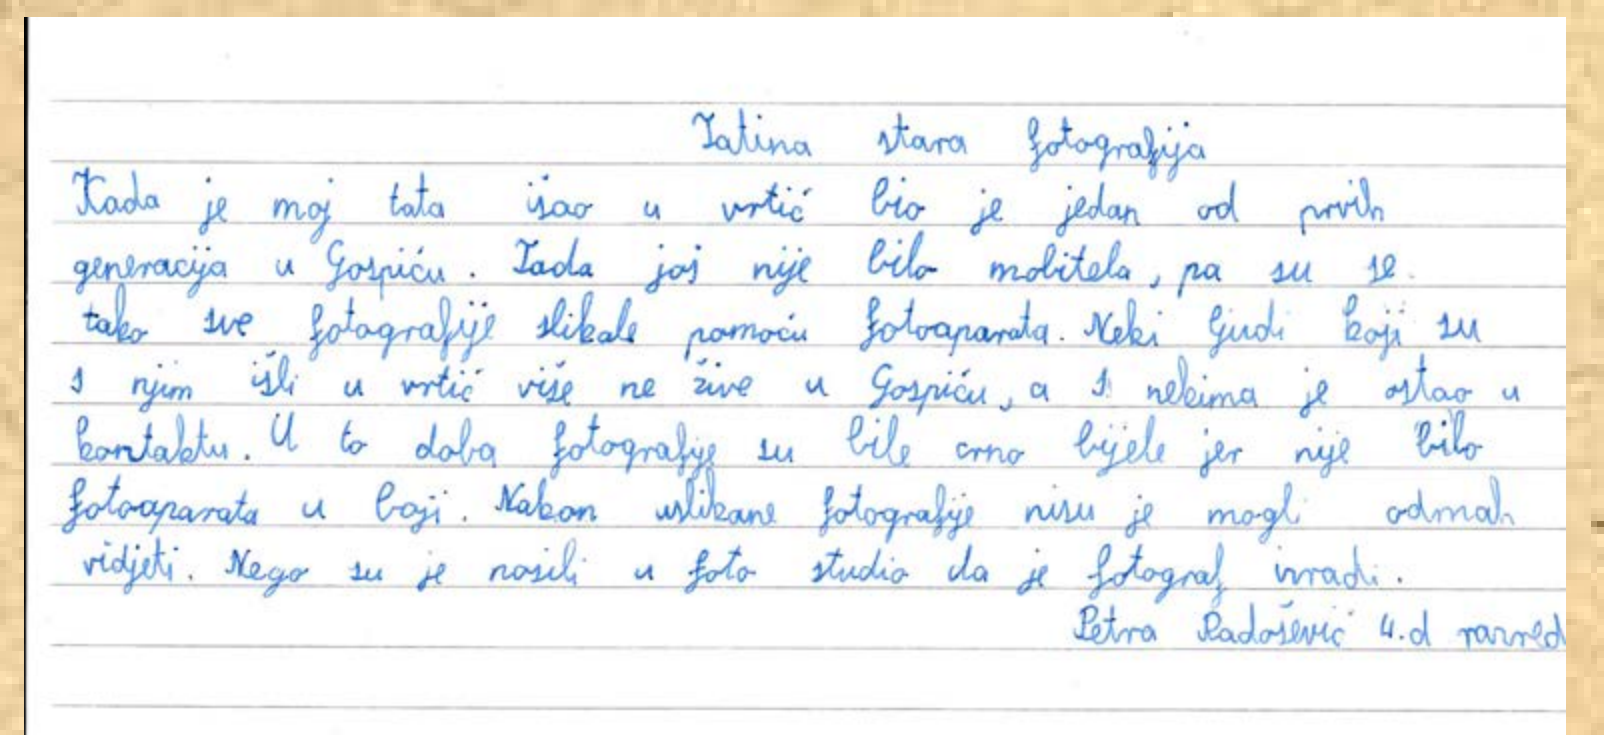 Tatina stara fotografija
Kada je moj tata išao u vrtić bio je jedan od prvih
generacija u Gospiću. Tada još nije bilo mobitela, pa su se
tako sve fotografije slikale pomoću fotoaparata. Neki ljudi koji su
s njim išli u vrtić više ne žive u Gospiću, a s nekima je ostao u
kontaktu. U to doba fotografije su bile crno bijele jer nije bilo
fotoaparata u boji. Nakon uslikane fotografije nisu je mogli odmah
vidjeti. Nego su je nosili u foto studio da je fotograf izradi.
Petra Radošević 4.d razred